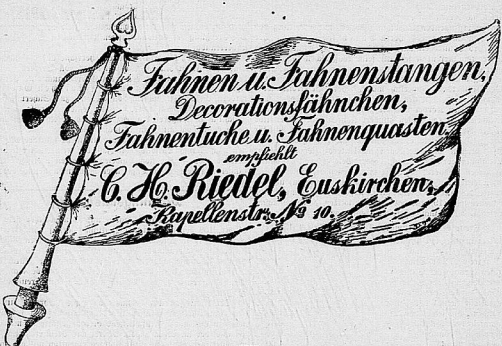 Fahnen u. Fahnenstangen,
Decorationsfähnchen,
Fahnentuche u. Fahnenquasten.
empfiehlt
C. H. Riedel, Euskirchen,
Kapellenstr. No 10.